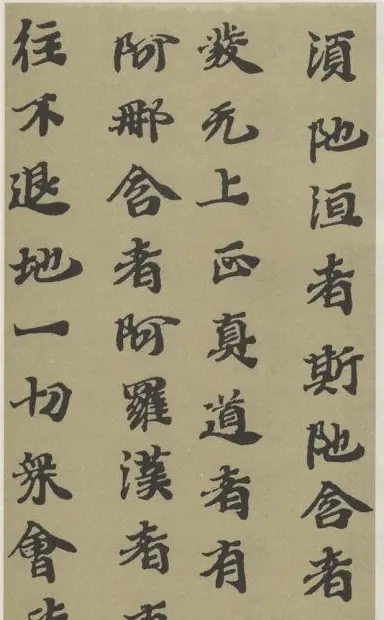 湏阤洹者斯阤含者
發无上正真道者有
阿那含者阿羅漢者
往不退地一切衆會